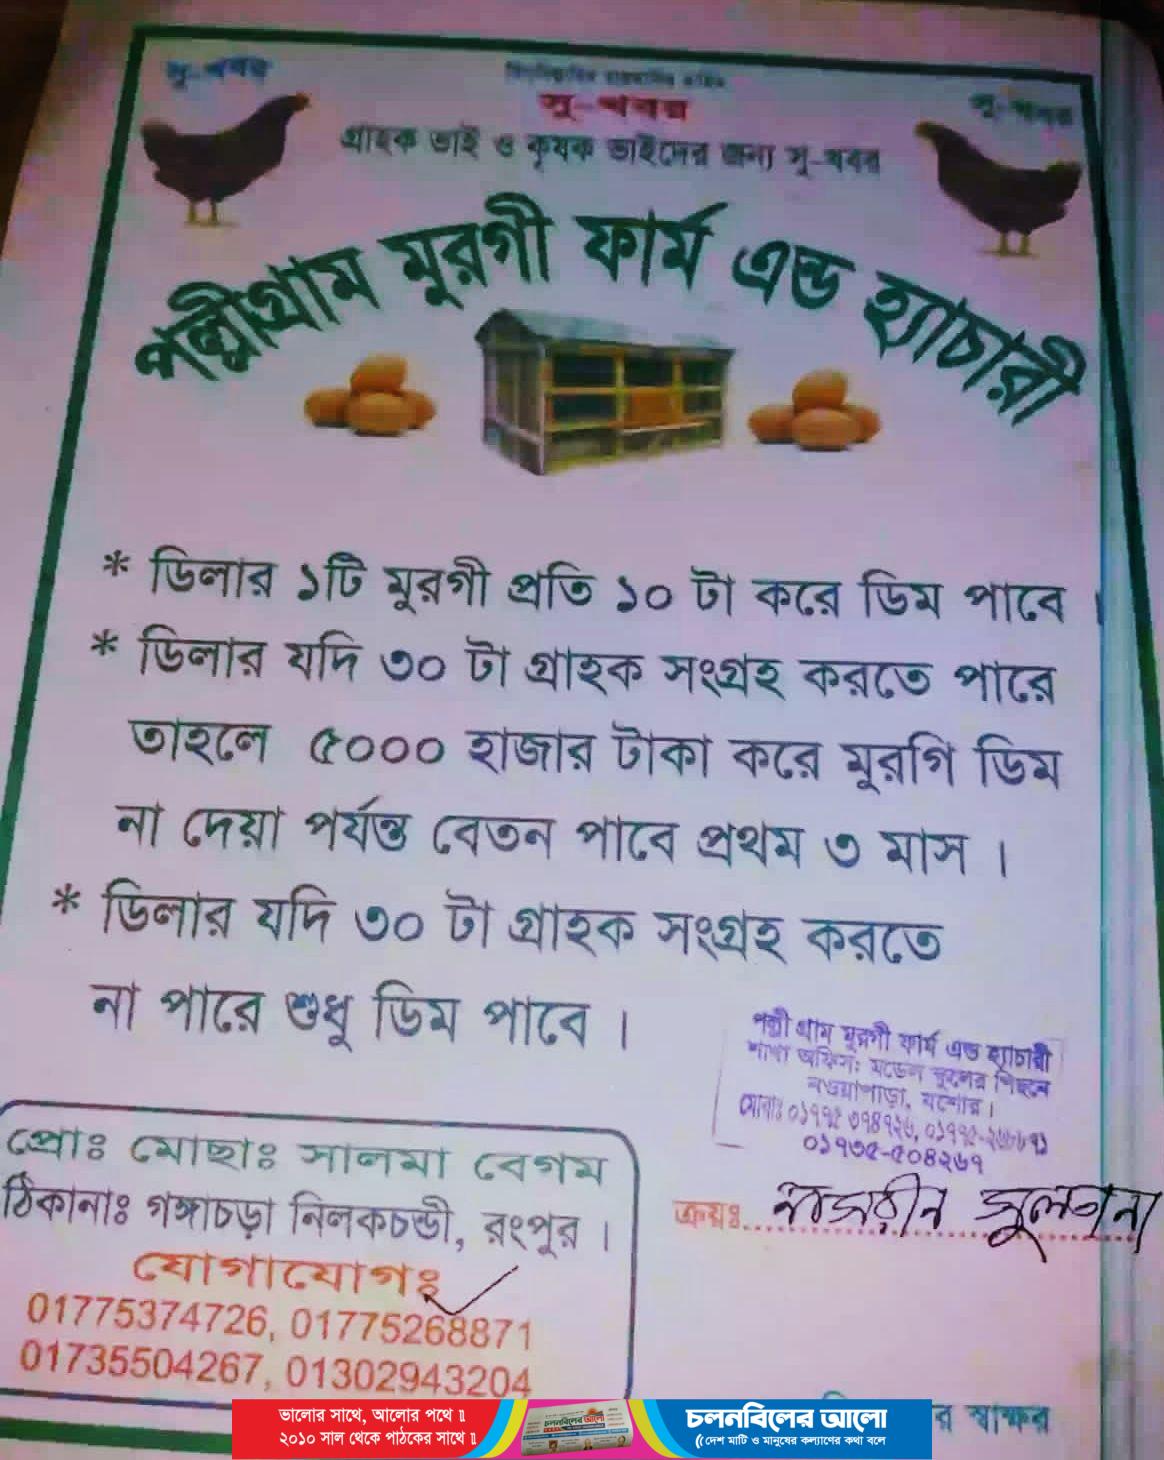 সু-খবর
সু-খবর
সু-খবর
গ্রাহক ভাই ও কৃষক ভাইদের জন্য সু-খবর
পল্লীগ্রাম মুরগী ফার্ম এন্ড হ্যাচারী
* ডিলার ১টি মুরগী প্রতি ১০ টা করে ডিম পাবে ।
* ডিলার যদি ৩০ টা গ্রাহক সংগ্রহ করতে পারে
তাহলে ৫০০০ হাজার টাকা করে মুরগি ডিম
না দেয়া পর্যন্ত বেতন পাবে প্রথম ৩ মাস ।
* ডিলার যদি ৩০ টা গ্রাহক সংগ্রহ করতে
না পারে শুধু ডিম পাবে ।
পল্লী গ্রাম মুরগী ফার্ম এন্ড হ্যাচারী
শাখা অফিস: মডেল স্কুলের পিছনে
নওয়াপাড়া, যশোর ।
মোবাঃ ০১৭৭৫ ৩৭৪৭২৬, ০১৭৭৫-২৬৮৮৭১
০১৭৩৫-৫০৪২৬৭
প্রোঃ মোছাঃ সালমা বেগম
ঠিকানাঃ গঙ্গাচড়া নিলকচন্ডী, রংপুর ।
যোগাযোগঃ
01775374726, 01775268871
01735504267, 01302943204
ক্রয়ঃ নাসরীন সুলতানা
র স্বাক্ষর
ভালোর সাথে, আলোর পথে ॥
২০১০ সাল থেকে পাঠকের সাথে ॥
চলনবিলের আলো
চলনবিলের আলো
(( দেশ মাটি ও মানুষের কল্যাণের কথা বলে